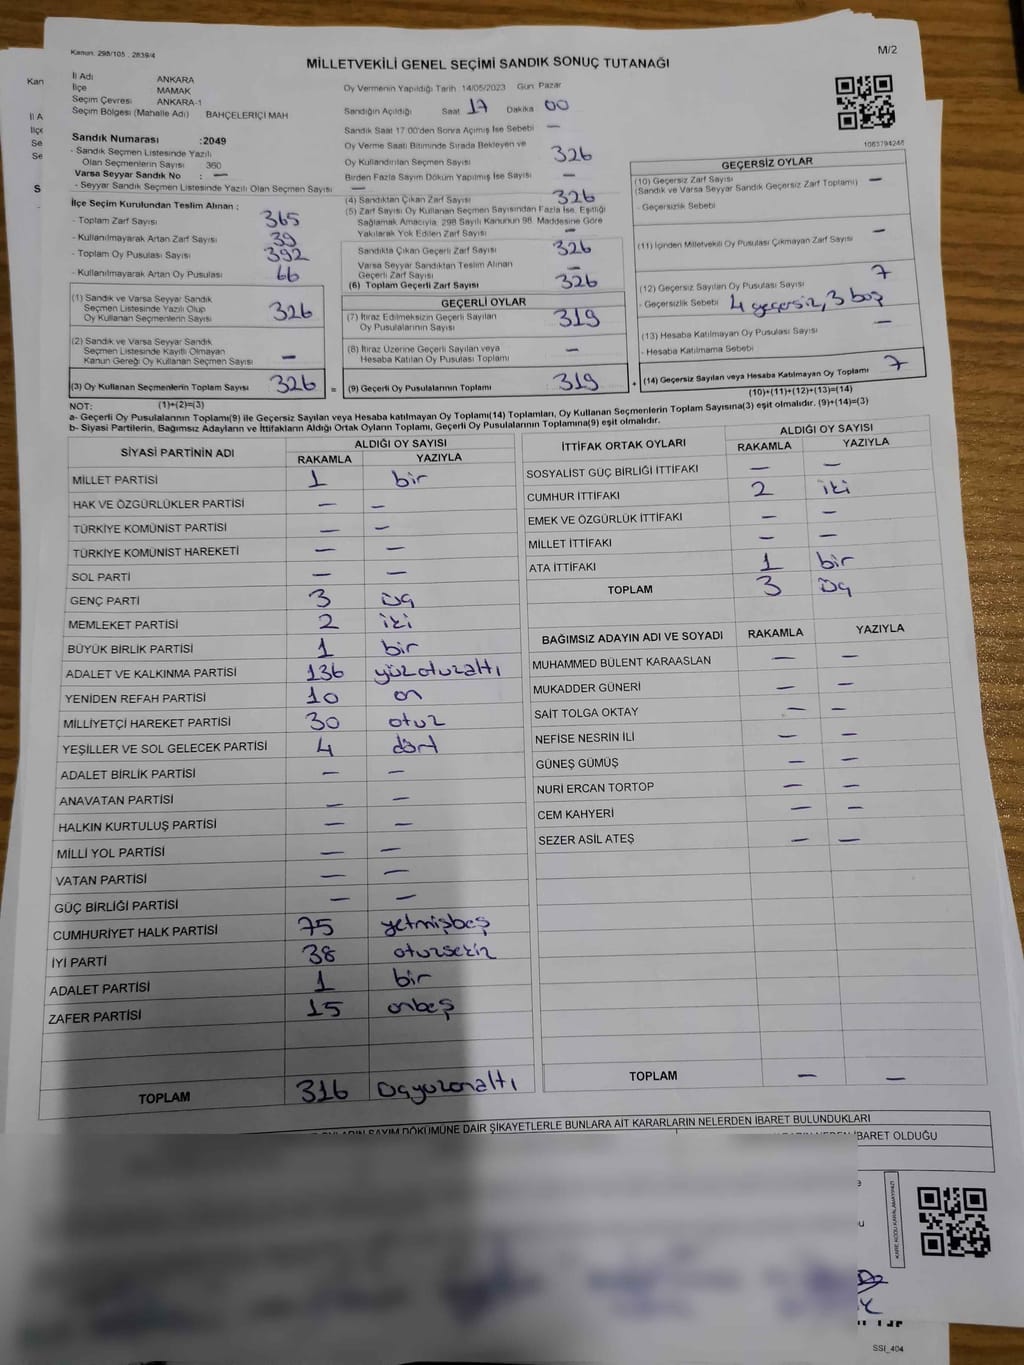 Kanun. 298/105 . 2839/4
M/2
MİLLETVEKİLİ GENEL SEÇİMİ SANDIK SONUÇ TUTANAĞI
İl Adı ANKARA
İlçe MAMAK
Seçim Çevresi ANKARA-1
Seçim Bölgesi (Mahalle Adı) BAHÇELERİÇİ MAH
Sandık Numarası :2049
- Sandık Seçmen Listesinde Yazılı
Olan Seçmenlerin Sayısı 360
Varsa Seyyar Sandık No : —
- Seyyar Sandık Seçmen Listesinde Yazılı Olan Seçmen Sayısı —
İlçe Seçim Kurulundan Teslim Alınan :
- Toplam Zarf Sayısı 365
- Kullanılmayarak Artan Zarf Sayısı 39
- Toplam Oy Pusulası Sayısı 392
- Kullanılmayarak Artan Oy Pusulası 66
(1) Sandık ve Varsa Seyyar Sandık
Seçmen Listesinde Yazılı Olup
Oy Kullanan Seçmenlerin Sayısı 326
(2) Sandık ve Varsa Seyyar Sandık
Seçmen Listesinde Kayıtlı Olmayan
Kanun Gereği Oy Kullanan Seçmen Sayısı —
(3) Oy Kullanan Seçmenlerin Toplam Sayısı 326 =
Oy Vermenin Yapıldığı Tarih 14/05/2023 Gün: Pazar
Sandığın Açıldığı Saat 17 Dakika 00
Sandık Saat 17:00'den Sonra Açılmış İse Sebebi —
Oy Verme Saati Bitiminde Sırada Bekleyen ve
Oy Kullandırılan Seçmen Sayısı 326
Birden Fazla Sayım Döküm Yapılmış İse Sayısı —
(4) Sandıktan Çıkan Zarf Sayısı 326
(5) Zarf Sayısı Oy Kullanan Seçmen Sayısından Fazla İse, Eşitliği
Sağlamak Amacıyla 298 Sayılı Kanunun 98. Maddesine Göre
Yakılarak Yok Edilen Zarf Sayısı —
Sandıkta Çıkan Geçerli Zarf Sayısı 326
Varsa Seyyar Sandıktan Teslim Alınan
Geçerli Zarf Sayısı —
(6) Toplam Geçerli Zarf Sayısı 326
GEÇERLİ OYLAR
(7) İtiraz Edilmeksizin Geçerli Sayılan
Oy Pusulalarının Sayısı 319
(8) İtiraz Üzerine Geçerli Sayılan veya
Hesaba Katılan Oy Pusulası Toplamı —
(9) Geçerli Oy Pusulalarının Toplamı 319 +
1063794246
GEÇERSİZ OYLAR
(10) Geçersiz Zarf Sayısı
(Sandık ve Varsa Seyyar Sandık Geçersiz Zarf Toplamı) —
- Geçersizlik Sebebi
(11) İçinden Milletvekili Oy Pusulası Çıkmayan Zarf Sayısı —
(12) Geçersiz Sayılan Oy Pusulası Sayısı 7
- Geçersizlik Sebebi 4 geçersiz, 3 boş
(13) Hesaba Katılmayan Oy Pusulası Sayısı —
- Hesaba Katılmama Sebebi
(14) Geçersiz Sayılan veya Hesaba Katılmayan Oy Toplamı 7
NOT: (1)+(2)=(3)
(10)+(11)+(12)+(13)=(14)
a- Geçerli Oy Pusulalarının Toplamı(9) ile Geçersiz Sayılan veya Hesaba katılmayan Oy Toplamı(14) Toplamları, Oy Kullanan Seçmenlerin Toplam Sayısına(3) eşit olmalıdır. (9)+(14)=(3)
b- Siyasi Partilerin, Bağımsız Adayların ve İttifakların Aldığı Ortak Oyların Toplamı, Geçerli Oy Pusulalarının Toplamına(9) eşit olmalıdır.
SİYASİ PARTİNİN ADI ALDIĞI OY SAYISI
RAKAMLA YAZIYLA
MİLLET PARTİSİ 1 bir
HAK VE ÖZGÜRLÜKLER PARTİSİ — —
TÜRKİYE KOMÜNİST PARTİSİ — —
TÜRKİYE KOMÜNİST HAREKETİ — —
SOL PARTİ — —
GENÇ PARTİ 3 üç
MEMLEKET PARTİSİ 2 iki
BÜYÜK BİRLİK PARTİSİ 1 bir
ADALET VE KALKINMA PARTİSİ 136 yüzotuzaltı
YENİDEN REFAH PARTİSİ 10 on
MİLLİYETÇİ HAREKET PARTİSİ 30 otuz
YEŞİLLER VE SOL GELECEK PARTİSİ 4 dört
ADALET BİRLİK PARTİSİ — —
ANAVATAN PARTİSİ — —
HALKIN KURTULUŞ PARTİSİ — —
MİLLİ YOL PARTİSİ — —
VATAN PARTİSİ — —
GÜÇ BİRLİĞİ PARTİSİ — —
CUMHURİYET HALK PARTİSİ 75 yetmişbeş
İYİ PARTİ 38 otuzsekiz
ADALET PARTİSİ 1 bir
ZAFER PARTİSİ 15 onbeş
TOPLAM 316 üçyüzonaltı
İTTİFAK ORTAK OYLARI ALDIĞI OY SAYISI
RAKAMLA YAZIYLA
SOSYALİST GÜÇ BİRLİĞİ İTTİFAKI — —
CUMHUR İTTİFAKI 2 iki
EMEK VE ÖZGÜRLÜK İTTİFAKI — —
MİLLET İTTİFAKI — —
ATA İTTİFAKI 1 bir
TOPLAM 3 üç
BAĞIMSIZ ADAYIN ADI VE SOYADI RAKAMLA YAZIYLA
MUHAMMED BÜLENT KARAASLAN — —
MUKADDER GÜNERİ — —
SAİT TOLGA OKTAY — —
NEFİSE NESRİN İLİ — —
GÜNEŞ GÜMÜŞ — —
NURİ ERCAN TORTOP — —
CEM KAHYERİ — —
SEZER ASİL ATEŞ — —
TOPLAM — —
SAYIM DÖKÜMÜNE DAİR ŞİKAYETLERLE BUNLARA AİT KARARLARIN NELERDEN İBARET BULUNDUKLARI
İBARET OLDUĞU
SSİ_404